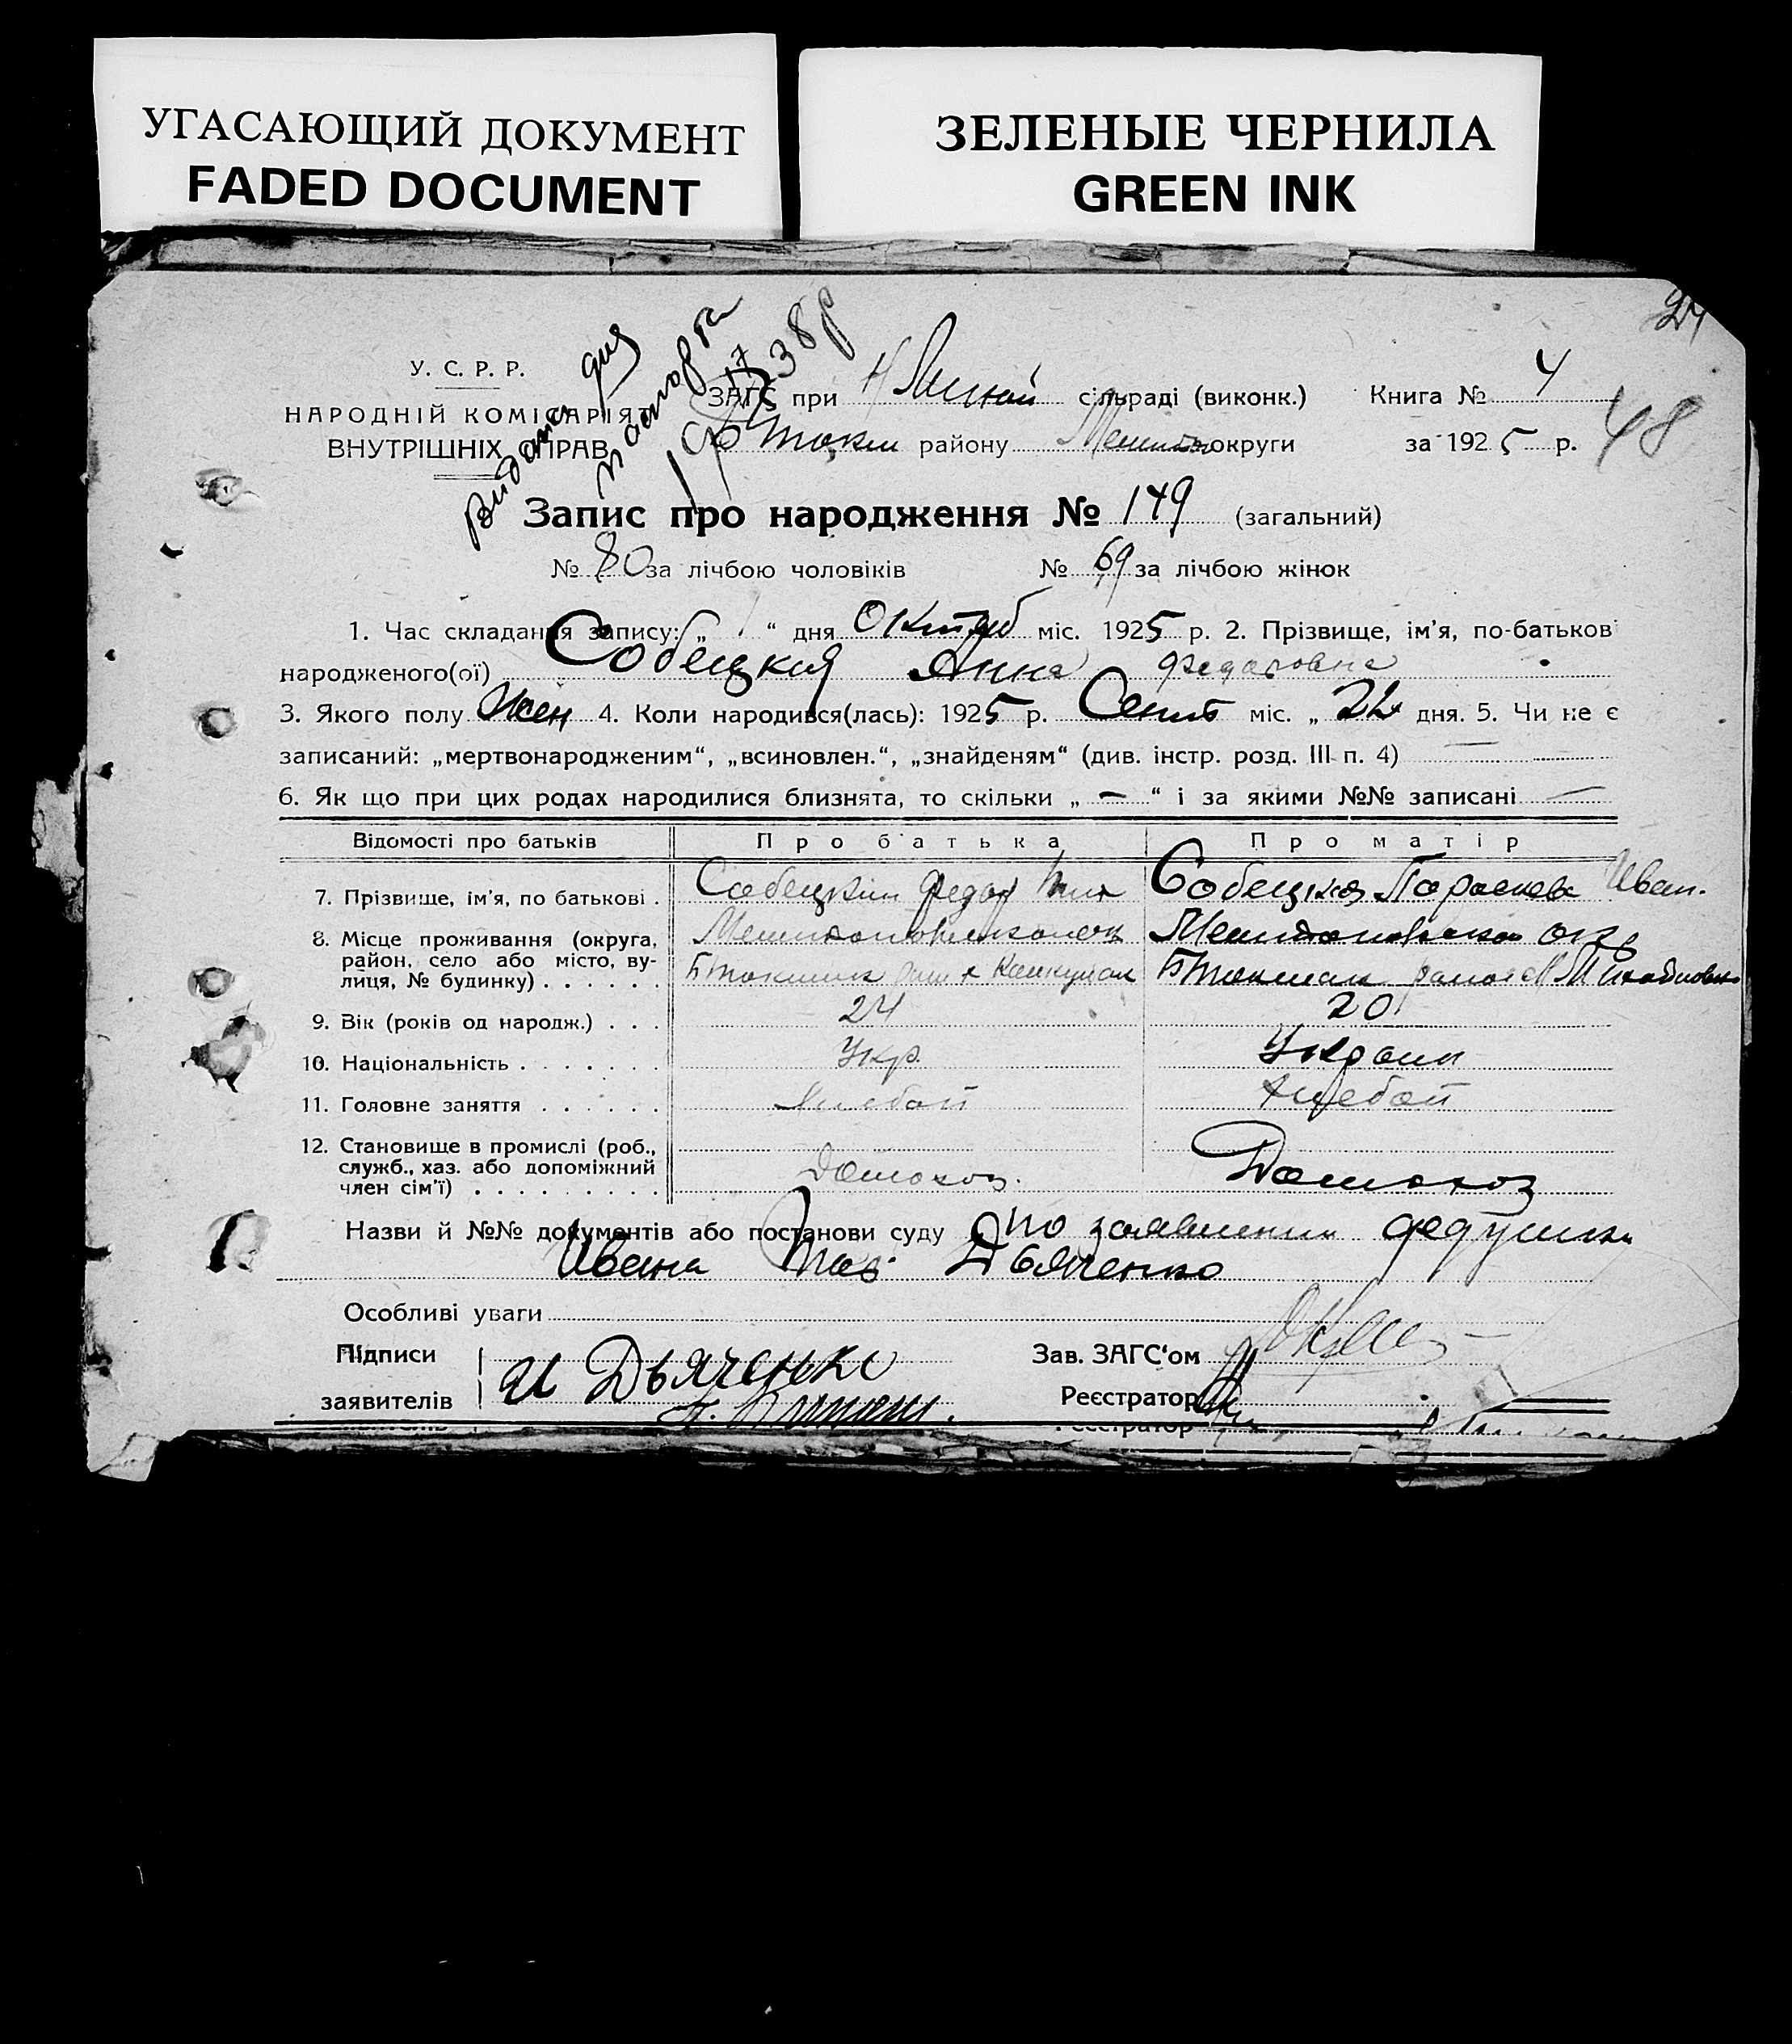 УГАСАЮЩИЙ ДОКУМЕНТ
FADED DOCUMENT
ЗЕЛЕНЫЕ ЧЕРНИЛА
GREEN INK
24
У. С. Р. Р.
НАРОДНІЙ КОМІСАРІЯТ
ВНУТРІШНІХ СПРАВ
Видано для
паспорта
38р
ЗАГС при сільраді (виконк.) Книга № 4
району округи за 1925 р. 48
Запис про народження № 149 (загальний)
№ 80 за лічбою чоловіків № 69 за лічбою жінок
1. Час складання запису: „ 1 “ дня Октяб міс. 1925 р. 2. Прізвище, ім'я, по-батькові
народженого(ої) Собецкая Анна Федоровна
3. Якого полу жен 4. Коли народився(лась): 1925 р. Сент міс. „ 22 дня. 5. Чи не є
записаний: „мертвонародженим“, „всиновлен.“, „знайденям“ (див. інстр. розд. III п. 4) —
6. Як що при цих родах народилися близнята, то скільки „ — “ і за якими №№ записані —
Відомості про батьків Про батька Про матір
7. Прізвище, ім'я, по батькові . Собецкий Федор Собецкая Параскева Иван.
8. Місце проживання (округа,
район, село або місто, ву-
лиця, № будинку) . . . . . . Бтокмак Бтокмак
9. Вік (років од народж.) . . . 24 20
10. Національність . . . . . . . Укр. Украин
11. Головне заняття . . . . . . Хлебоп Хлебоп
12. Становище в промислі (роб.,
служб., хаз. або допоміжний
член сім'ї) . . . . . . . . . Домохоз. Домохоз
Назви й №№ документів або постанови суду по заявлению дедушки
Ивана Дьяченко
Особливі уваги
Підписи И Дьяченко Зав. ЗАГС'ом
заявителів Реєстратор
Реєстратор